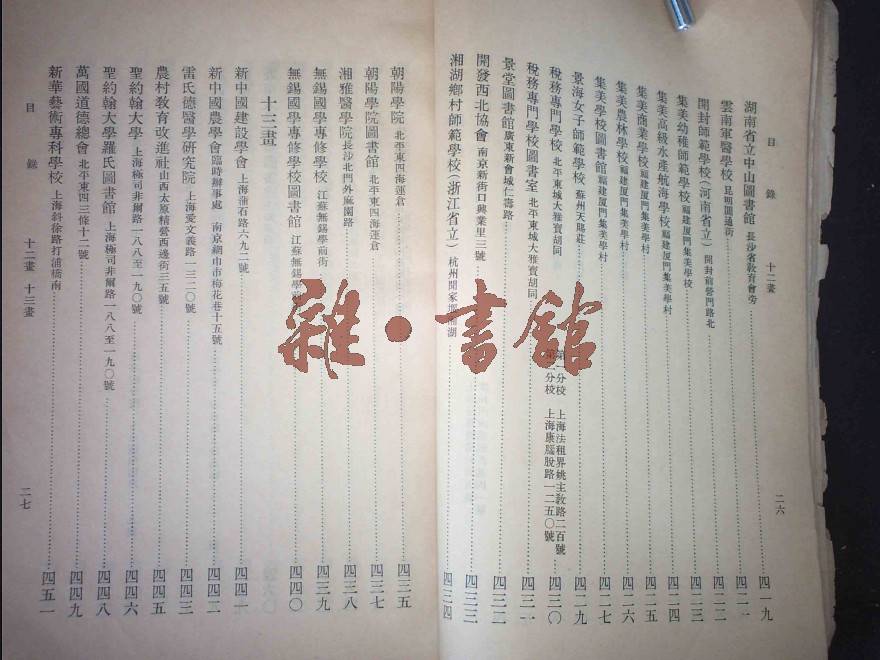 目錄　十二畫　二六
湖南省立中山圖書館　長沙省教育會旁……四一九
雲南軍醫學校　昆明圓通街……四二一
開封師範學校(河南省立)　開封前營門路北……四二二
集美幼稚師範學校　福建厦門集美學校……四二三
集美高級水產航海學校　福建厦門集美學村……四二四
集美商業學校　福建厦門集美學村……四二五
集美農林學校　福建厦門集美學村……四二六
集美學校圖書館　福建厦門集美學村……四二七
景海女子師範學校　蘇州天賜莊……四二九
稅務專門學校　北平東城大雅寶胡同　第一分校　上海法租界姚主教路二百號　第二分校　上海康腦脫路一二五〇號……四三〇
稅務專門學校圖書室　北平東城大雅寶胡同……四三一
景堂圖書館　廣東新會城仁壽路……四三二
開發西北協會　南京新街口興業里三號……四三三
湘湖鄉村師範學校(浙江省立)　杭州聞家堰湘湖……四三四
朝陽學院　北平東四海運倉……四三五
朝陽學院圖書館　北平東四海運倉……四三七
湘雅醫學院　長沙北門外麻園路……四三八
無錫國學專修學校　江蘇無錫學前街……四三九
無錫國學專修學校圖書館　江蘇無錫學前……四四〇
十三畫
新中國建設學會　上海蒲石路六九二號……四四一
新中國農學會　臨時辦事處　南京網巾市梅花巷十五號……四四二
雷氏德醫學研究院　上海愛文義路一三二〇號……四四三
農村教育改進社　山西太原精營西邊街三五號……四四五
聖約翰大學　上海極司非爾路一八八至一九〇號……四四六
聖約翰大學羅氏圖書館　上海極司非爾路一八八至一九〇號……四四八
萬國道德總會　北平東四三條十二號……四四九
新華藝術專科學校　上海斜徐路打浦橋南……四五一
目錄　十二畫　十三畫　二七
雜·書館